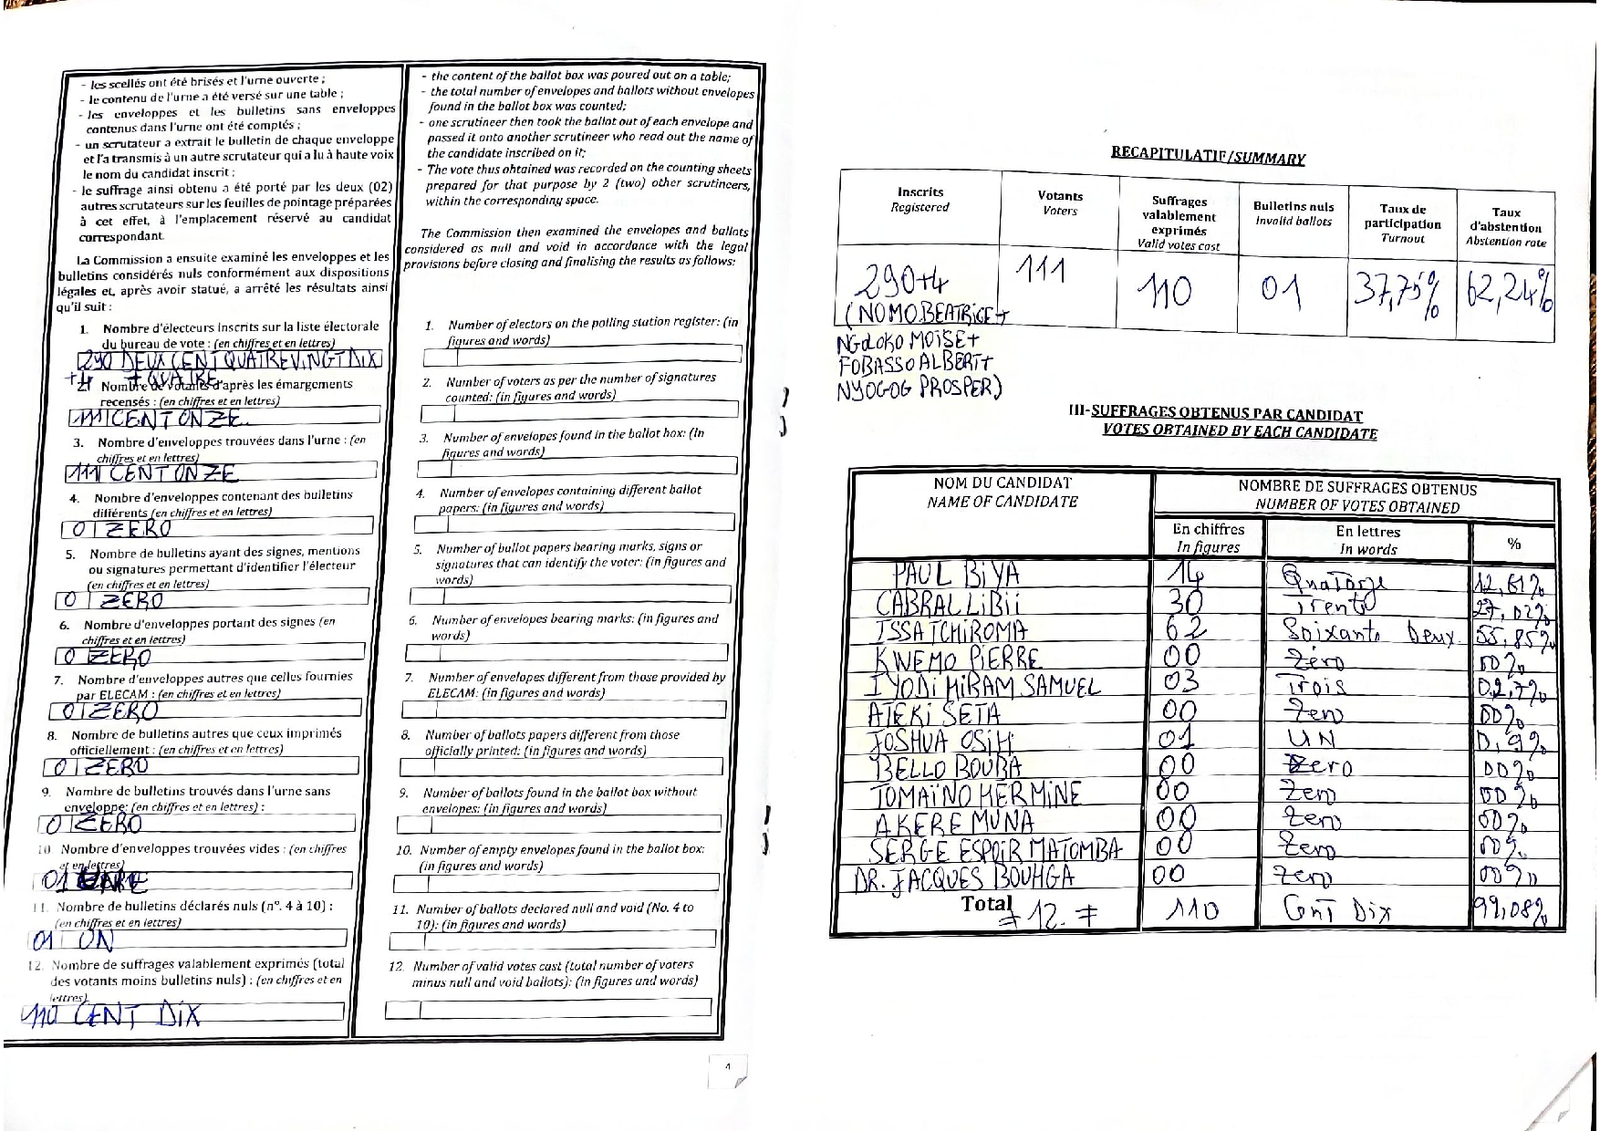 - les scellés ont été brisés et l'urne ouverte ;
- le contenu de l'urne a été versé sur une table ;
- les enveloppes et les bulletins sans enveloppes
contenus dans l'urne ont été comptés ;
- un scrutateur a extrait le bulletin de chaque enveloppe
et l'a transmis à un autre scrutateur qui a lu à haute voix
le nom du candidat inscrit ;
- le suffrage ainsi obtenu a été porté par les deux (02)
autres scrutateurs sur les feuilles de pointage préparées
à cet effet, à l'emplacement réservé au candidat
correspondant.
La Commission a ensuite examiné les enveloppes et les
bulletins considérés nuls conformément aux dispositions
légales et, après avoir statué, a arrêté les résultats ainsi
qu'il suit :
1. Nombre d'électeurs inscrits sur la liste électorale
du bureau de vote : (en chiffres et en lettres)
290 DEUX CENT QUATRE VINGT DIX
+4 + QUATRE
2. Nombre de votants d'après les émargements
recensés : (en chiffres et en lettres)
111 CENT ONZE
3. Nombre d'enveloppes trouvées dans l'urne : (en
chiffres et en lettres)
111 CENT ONZE
4. Nombre d'enveloppes contenant des bulletins
différents (en chiffres et en lettres)
0 ZERO
5. Nombre de bulletins ayant des signes, mentions
ou signatures permettant d'identifier l'électeur
(en chiffres et en lettres)
0 ZERO
6. Nombre d'enveloppes portant des signes (en
chiffres et en lettres)
0 ZERO
7. Nombre d'enveloppes autres que celles fournies
par ELECAM : (en chiffres et en lettres)
0 ZERO
8. Nombre de bulletins autres que ceux imprimés
officiellement : (en chiffres et en lettres)
0 ZERO
9. Nombre de bulletins trouvés dans l'urne sans
enveloppe: (en chiffres et en lettres) :
0 ZERO
10 Nombre d'enveloppes trouvées vides : (en chiffres
et en lettres)
01
11. Nombre de bulletins déclarés nuls (n°. 4 à 10) :
(en chiffres et en lettres)
01 UN
12. Nombre de suffrages valablement exprimés (total
des votants moins bulletins nuls) : (en chiffres et en
lettres)
110 CENT DIX
- the content of the ballot box was poured out on a table;
- the total number of envelopes and ballots without envelopes
found in the ballot box was counted;
- one scrutineer then took the ballot out of each envelope and
passed it onto another scrutineer who read out the name of
the candidate inscribed on it;
- The vote thus obtained was recorded on the counting sheets
prepared for that purpose by 2 (two) other scrutineers,
within the corresponding space.
The Commission then examined the envelopes and ballots
considered as null and void in accordance with the legal
provisions before closing and finalising the results as follows:
1. Number of electors on the polling station register: (in
figures and words)
2. Number of voters as per the number of signatures
counted: (in figures and words)
3. Number of envelopes found in the ballot box: (In
figures and words)
4. Number of envelopes containing different ballot
papers: (in figures and words)
5. Number of ballot papers bearing marks, signs or
signatures that can identify the voter: (in figures and
words)
6. Number of envelopes bearing marks: (in figures and
words)
7. Number of envelopes different from those provided by
ELECAM: (in figures and words)
8. Number of ballots papers different from those
officially printed: (in figures and words)
9. Number of ballots found in the ballot box without
envelopes: (in figures and words)
10. Number of empty envelopes found in the ballot box:
(in figures and words)
11. Number of ballots declared null and void (No. 4 to
10): (in figures and words)
12. Number of valid votes cast (total number of voters
minus null and void ballots): (in figures and words)
4
RECAPITULATIF/SUMMARY
Inscrits Registered | Votants Voters | Suffrages valablement exprimés Valid votes cast | Bulletins nuls Invalid ballots | Taux de participation Turnout | Taux d'abstention Abstention rate
290+4 111 110 01 37,75% 62,24%
(NOMO BEATRICE +
NGOLOKO MOISE +
FOBASSO ALBERT +
NYOGOG PROSPER)
III-SUFFRAGES OBTENUS PAR CANDIDAT
VOTES OBTAINED BY EACH CANDIDATE
NOM DU CANDIDAT NOMBRE DE SUFFRAGES OBTENUS
NAME OF CANDIDATE NUMBER OF VOTES OBTAINED
En chiffres En lettres %
In figures In words
PAUL BIYA 14 Quatorze 12,61%
CABRAL LIBII 30 Trente 27,02%
ISSA TCHIROMA 62 Soixante Deux 55,85%
KWEMO PIERRE 00 Zéro 00%
IYODI HIRAM SAMUEL 03 Trois 02,7%
ATEKI SETA 00 Zero 00%
JOSHUA OSIH 01 UN 0,9%
BELLO BOUBA 00 Zero 00%
TOMAÏNO HERMINE 00 Zero 00%
AKERE MUNA 00 Zero 00%
SERGE ESPOIR MATOMBA 00 Zero 00%
DR. JACQUES BOUHGA 00 Zero 00%
Total ≠ 12. ≠ 110 Cent Dix 99,08%